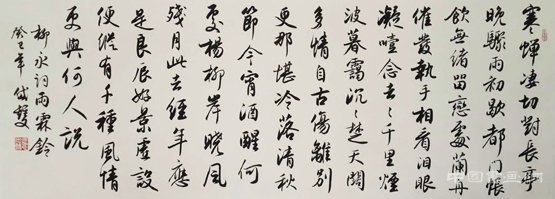 寒蟬凄切對長亭
晚驟雨初歇都門帳
飲無緒留戀處蘭舟
催發執手相看泪眼
凝噎念去〻千里煙
波暮靄沉〻楚天闊
多情自古傷離別
更那堪冷落清秋
節今宵酒醒何
處楊柳岸曉風
殘月此去經年應
是良辰好景虛設
便縱有千種風情
更與何人說
柳永詞雨霖鈴
癸巳年